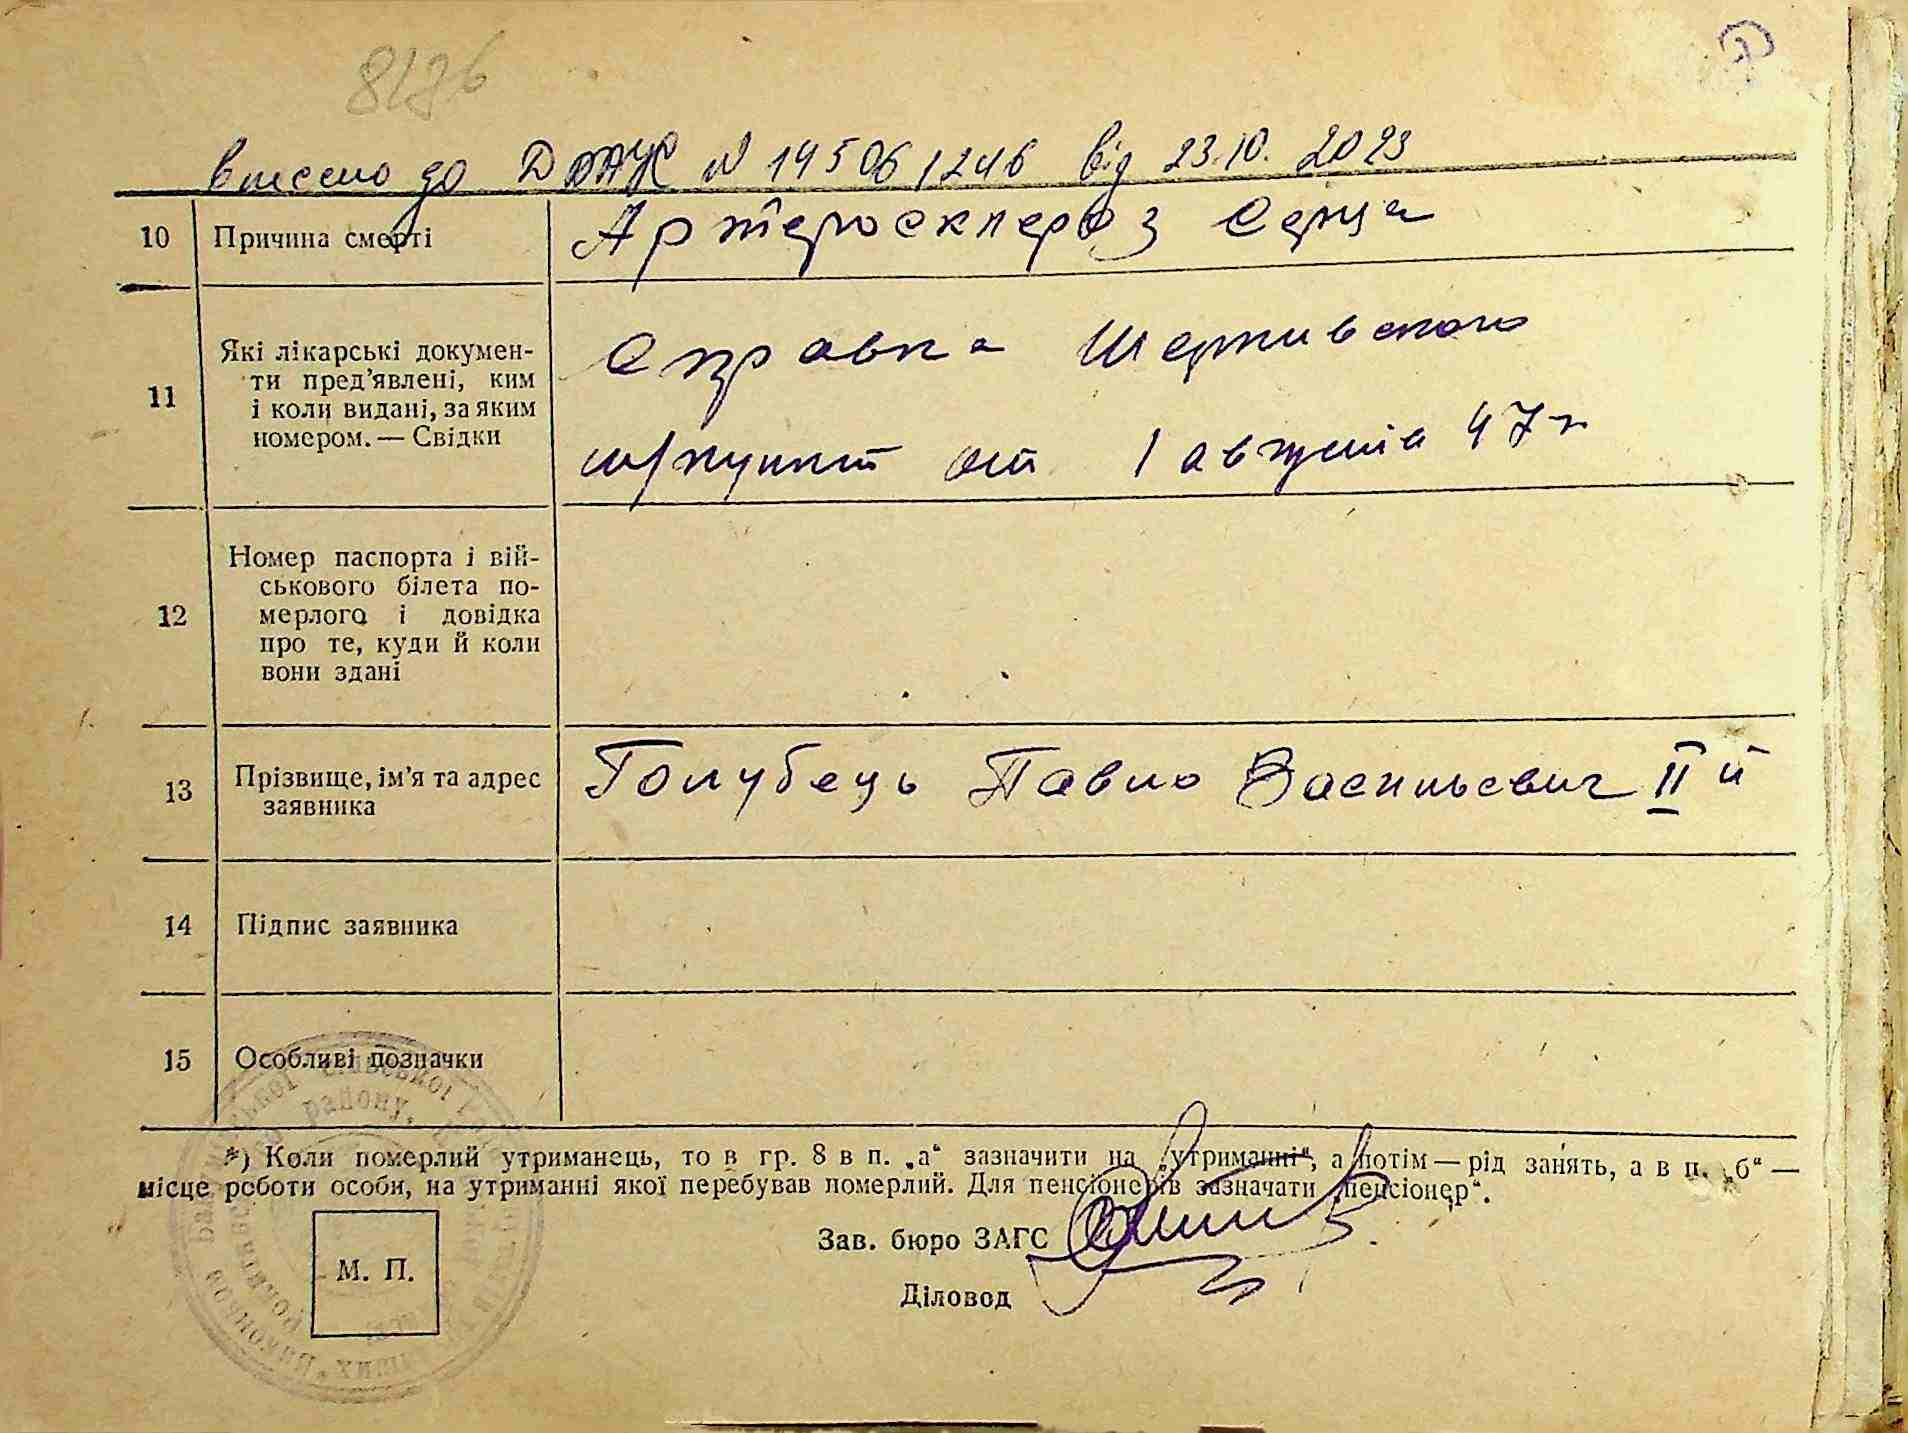 8176
внесено до ДРАЦС N 195061246 від 23.10. 2023
10 Причина смерті Артеросклероз Серца
11 Які лікарські докумен-
ти пред'явлені, ким
і коли видані, за яким
номером. — Свідки
Справка
м/пункт от 1 августа 47 г
12 Номер паспорта і вій-
ськового білета по-
мерлого і довідка
про те, куди й коли
вони здані
13 Прізвище, ім'я та адрес
заявника
Голубець Павло Васильевич II й
14 Підпис заявника
15 Особливі позначки
*) Коли померлий утриманець, то в гр. 8 в п. „а“ зазначити на „утриманні“, а потім — рід занять, а в п. „б“ —
місце роботи особи, на утриманні якої перебував померлий. Для пенсіонерів зазначати „пенсіонер“.
Зав. бюро ЗАГС
М. П.
Діловод